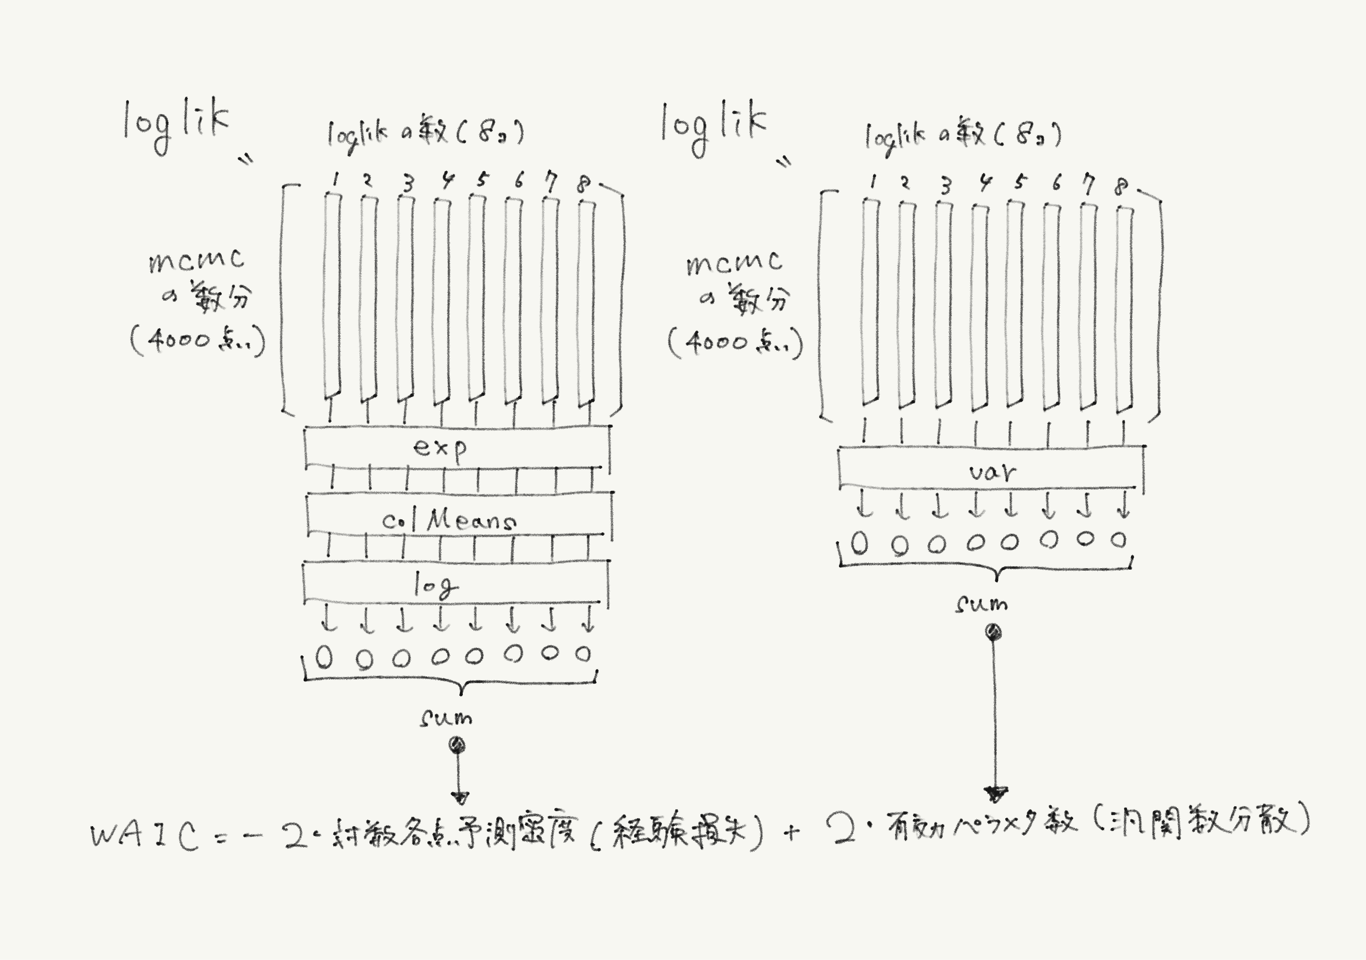 loglik
loglikの数(8コ)
1 2 3 4 5 6 7 8
mcmc
の数分
(4000点)
exp
colMeans
log
sum
loglik
loglikの数(8コ)
1 2 3 4 5 6 7 8
mcmc
の数分
(4000点)
var
sum
WAIC = - 2・対数各点予測密度(経験損失) + 2・有効パラメタ数(汎関数分散)